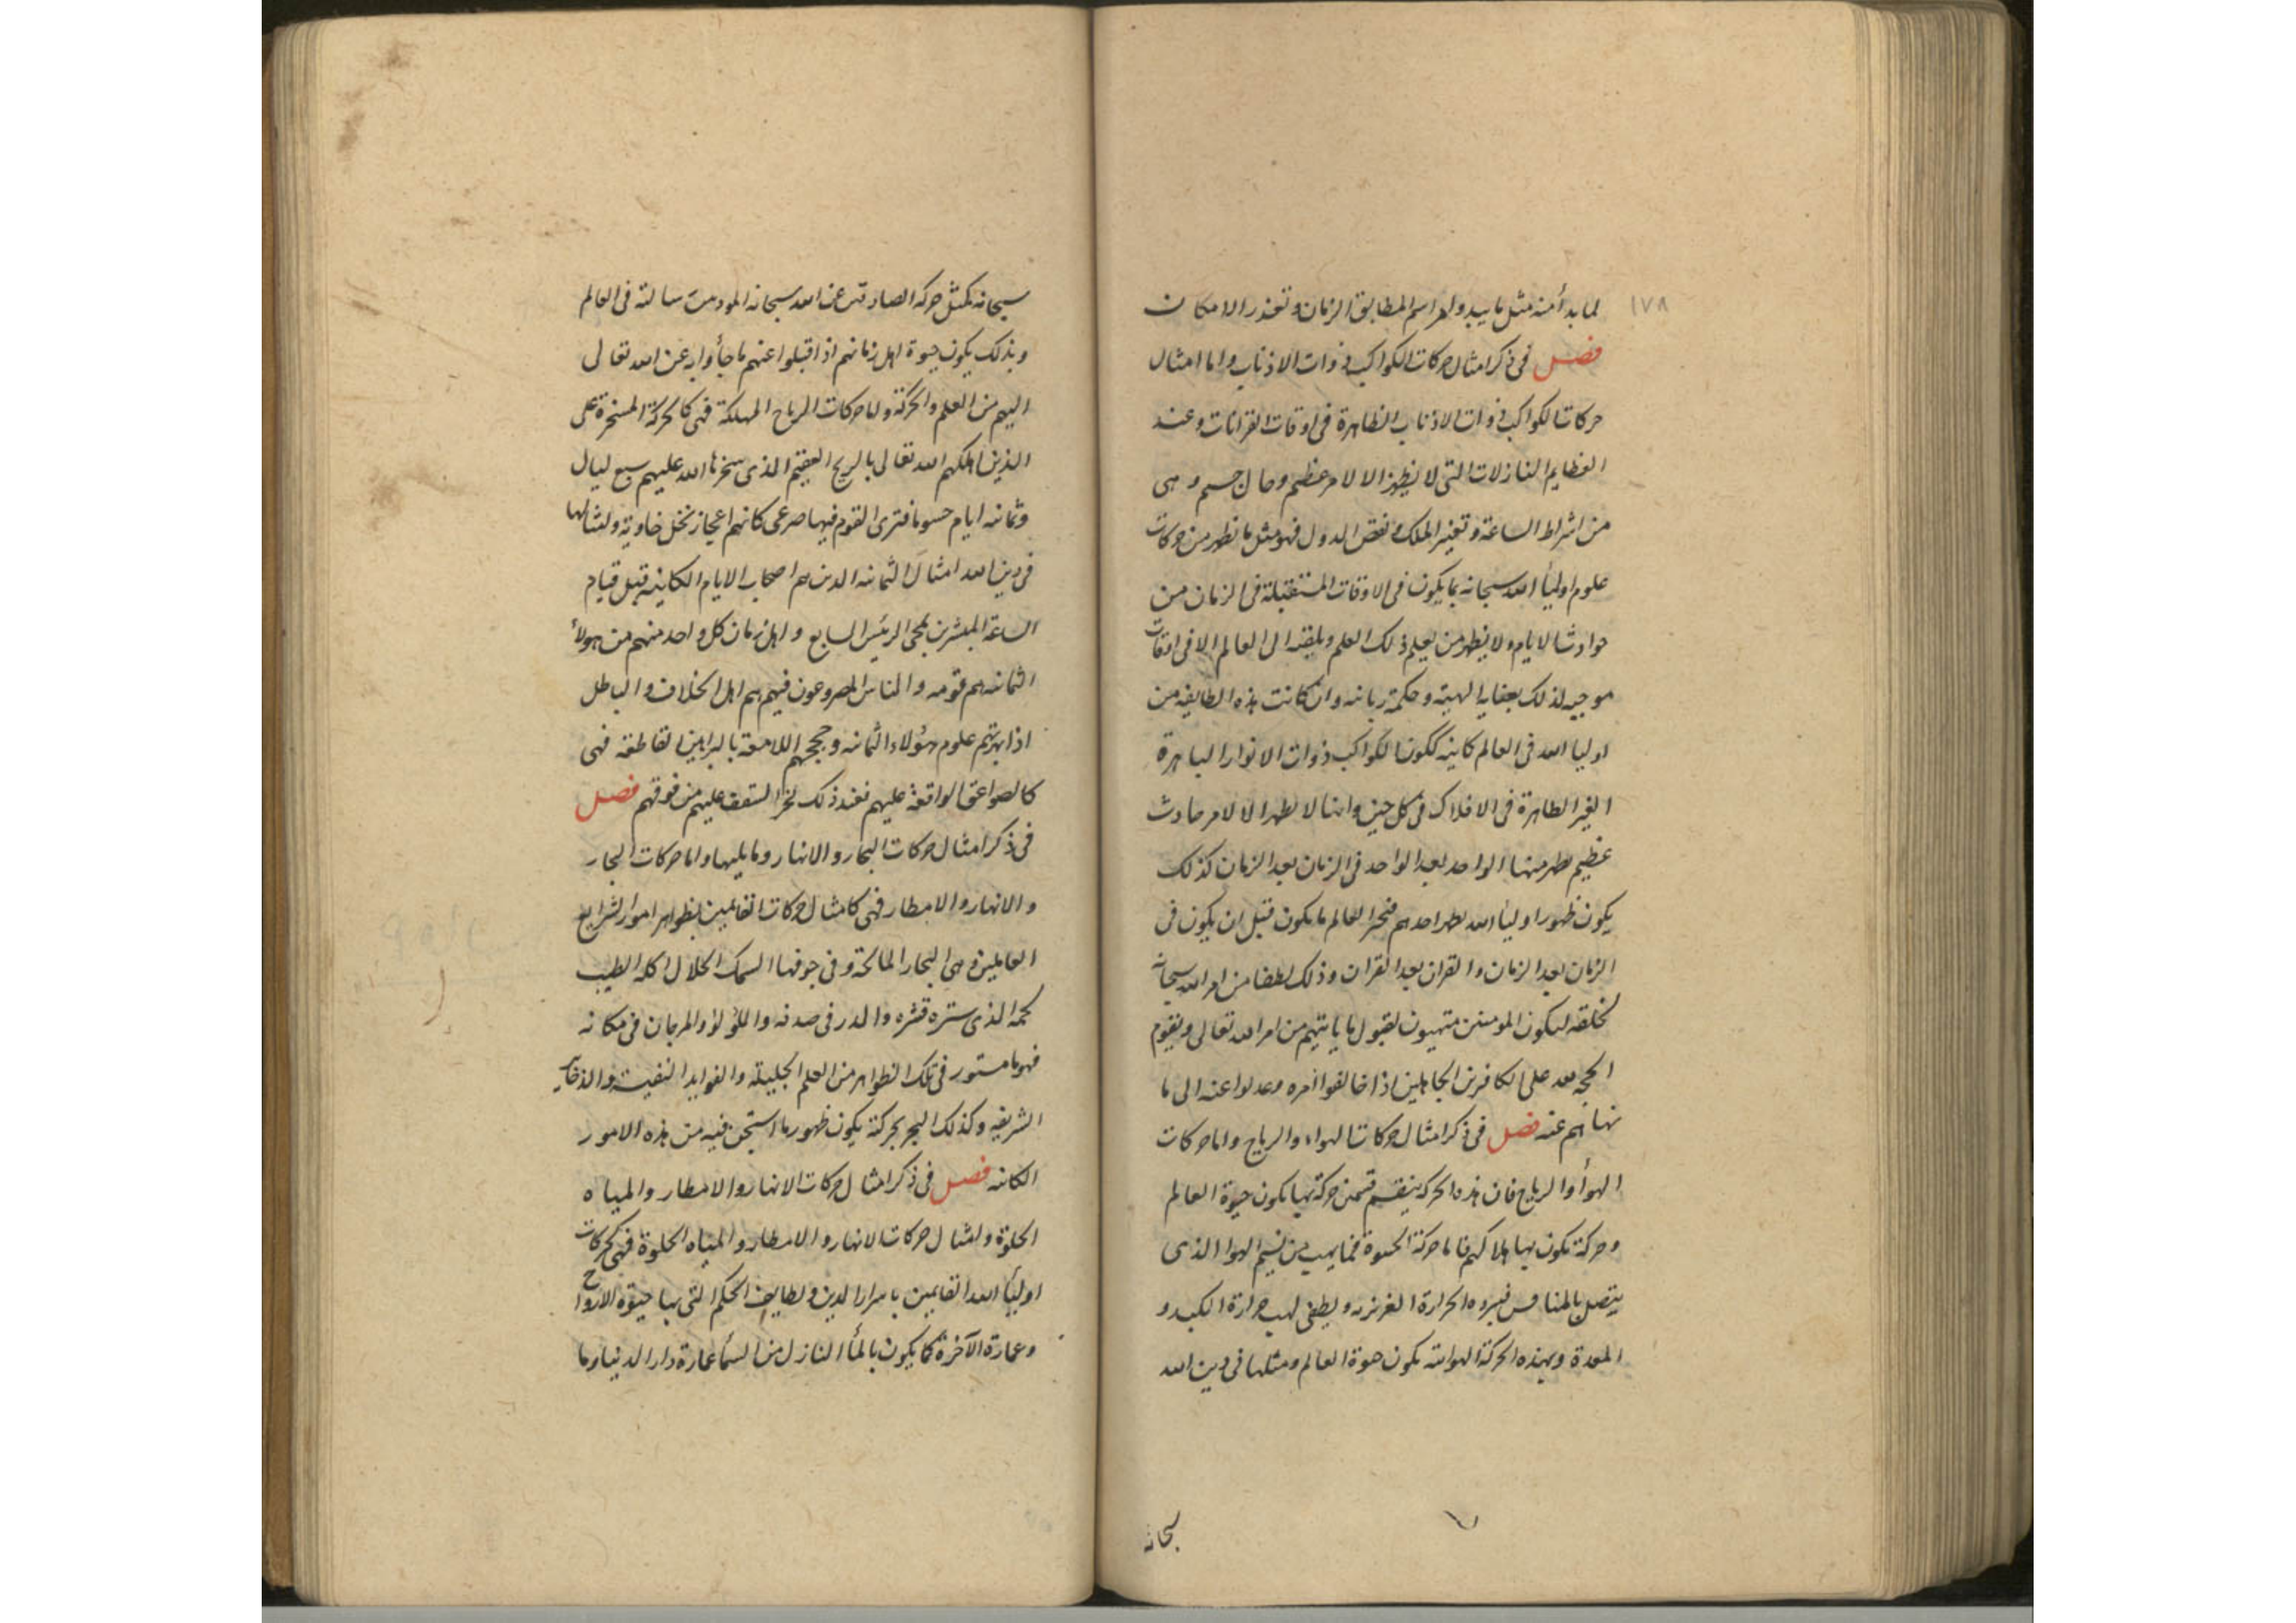 ١٧٨
لما بدأ منه مثل ما يبدو لمراسم المطابق الزمان وتعذر الامكان
فصل فى ذكر امثال حركات الكواكب ذوات الاذناب واما امثال
حركات الكواكب ذوات الاذناب الظاهرة فى اوقات القرانات وعند
العظايم النازلات التى لا يظهر الا لامر عظيم وحال جسيم وهى
من اشراط الساعة وتغير الملك ونقض الدول فهو مثل ما يظهر من حركات
علوم اوليأ الله سبحانه بما يكون فى الاوقات المستقبلة فى الزمان من
حوادث الايام ولا يظهر من يعلم ذلك العلم ويلقيه الى العالم الا فى اوقات
موجبه لذلك بعناية الهية وحكمة ربانيه وان كانت هذه الطايفه من
اوليا الله فى العالم كاينه ككون الكواكب ذوات الانوار الباهرة
الغير الظاهرة فى الافلاك فى كل حين وانها لا تظهر الا لامر حادث
عظيم يظهر منها الواحد بعد الواحد فى الزمان بعد الزمان كذلك
يكون ظهور اوليأ الله يظهر احدهم فيخبر العالم ما يكون قبل ان يكون فى
الزمان بعد الزمان والقران بعد القران وذلك لطفا من امر الله سبحانه
لخلقه ليكون المومنين متهيون لقبول ما ياتيهم من امر الله تعالى ويقوم
الحجه لله على الكافرين الجاهلين اذا خالفوا أمره وعدلوا عنه الى ما
نهاهم عنه فصل فى ذكر امثال حركات الهواء والرياح واما حركات
الهوأ والرياح فان هذه الحركه ينقسم قسمين حركة بها يكون حيوة العالم
وحركة يكون بها هلاكهم فاما حركة الحيوة فما يهب من نسيم الهوا الذى
يتصل بالمنافس فيروه الحرارة الغريزيه ويطفى لهب حرارة الكبد و
المعدة وبهذه الحركة الهوائيه يكون حيوة العالم ومثلها فى دين الله
سبحانه
سبحانه كمثل حركه الصادقين عن الله سبحانه المود من رسالته فى العالم
وبذلك يكون حيوة اهل زمانهم اذا قبلوا عنهم ما جأوا به عن الله تعالى
اليهم من العلم والحركة واما حركات الرياح المهلكة فهى كالحركة المسخرة على
الذين اهلكهم الله تعالى بالريح العقيم الذى سخرها الله عليهم سبع ليال
وثمانيه ايام حسوما فترى القوم فيها صرعى كانهم اعجاز نخل خاوية ولمثالها
فى دين الله امثال الثمانيه الذين هم اصحاب الايام الكاينه قبل قيام
الساعة المبشرين بمجى الرئيس السابع واهل زمان كل واحد منهم من هولأ
الثمانيه هم قومه والناس المصروعون فيهم هم اهل الخلاف والباطل
اذا بهرتهم علوم هؤلاء الثمانيه وحججهم اللامعة بالبراهين القاطعه فهى
كالصواعق الواقعة عليهم فعند ذلك لخر السقف عليهم من فوقهم فصل
فى ذكر امثال حركات البحار والانهار وما يليها واما حركات البحار
والانهار والامطار فهى كامثال حركات القايمين بظواهر امور الشرايع
العاملين وهى البحار المالحة وفى جوفها السمك الحلال اكله الطيب
لحمه الذى ستره قشره والدر فى صدفه واللؤلؤ والمرجان فى مكانه
فهو ما مستور فى تلك الظواهر من العلم الجليله والفوايد النفيسه والذخاير
الشريفه وكذلك البحر بحركته يكون ظهور ما استجن فيه من هذه الامور
الكاينه فصل فى ذكر امثال حركات الانهار والامطار والمياه
الحلوة وامثال حركات الانهار والامطار والمياه الحلوة فهى كحركات
اوليأ الله القايمين باسرار الدين ولطايف الحكم التى بها حيوة الارواح
وعمارة الآخرة كما يكون بالمأ النازل من السمأ عمارة دار الدنيا وما